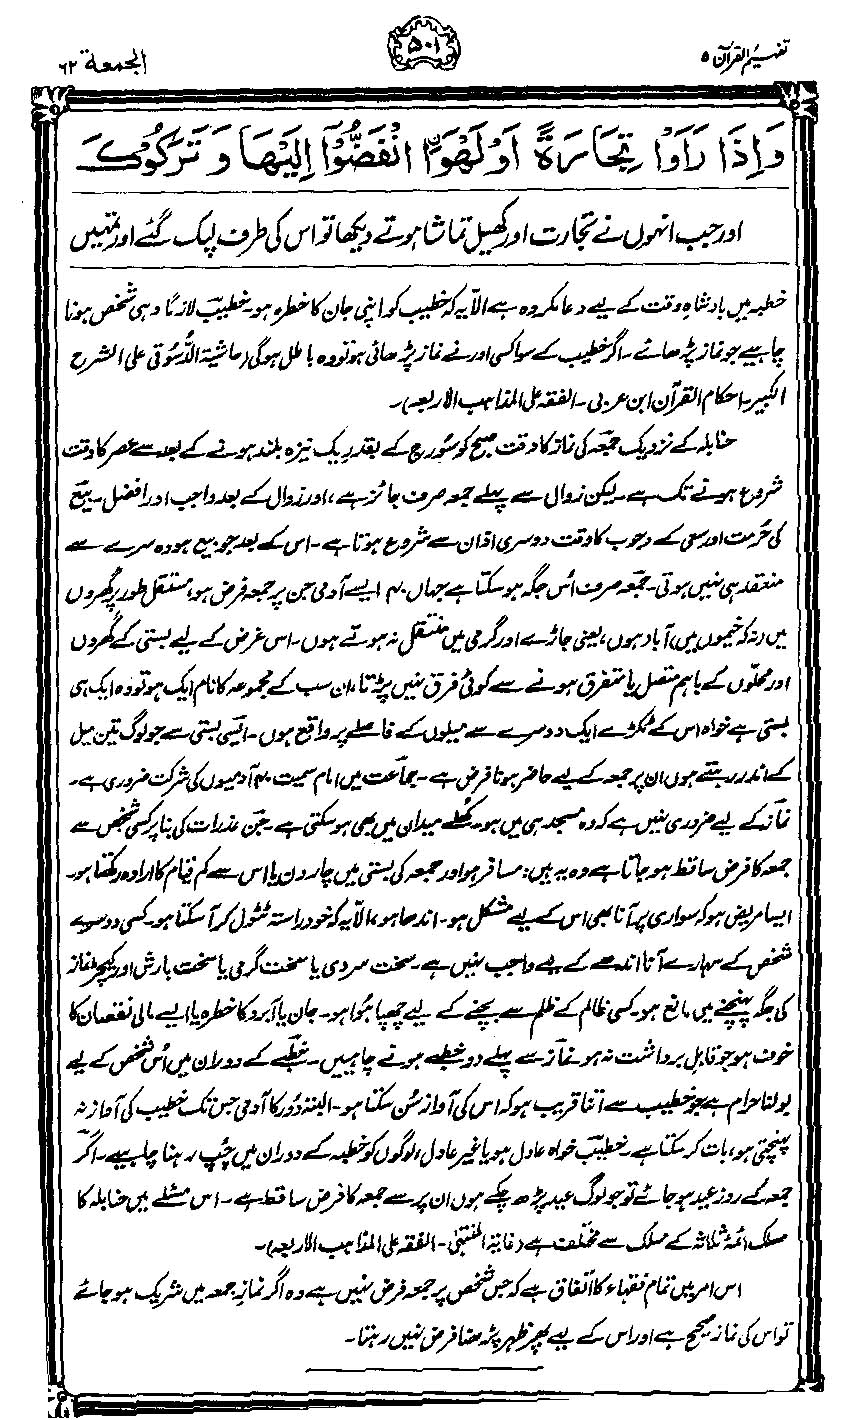 تفہیم القرآن ۵
۵۰۱
الجمعۃ ۶۲
وَاِذَا رَاَوْا تِجَارَةً اَوْ لَهْوَا۟ انْفَضُّوْۤا اِلَيْهَا وَ تَرَكُوْكَ
اور جب انہوں نے تجارت اور کھیل تماشا ہوتے دیکھا تو اس کی طرف لپک گئے اور تمہیں
خطبہ میں بادشاہِ وقت کے لیے دعا مکروہ ہے الّا یہ کہ خطیب کو اپنی جان کا خطرہ ہو۔ خطیب لازمًا وہی شخص ہونا
چاہیے جو نماز پڑھائے۔ اگر خطیب کے سوا کسی اور نے نماز پڑھائی ہو تو وہ باطل ہوگی (حاشیۃ الدُّسُوقی علی الشرح
الکبیر۔ احکام القرآن ابن عربی۔ الفقہ علی المذاہب الاربعہ)۔
حنابلہ کے نزدیک جمعہ کی نماز کا وقت صبح کو سُورج کے بقدر یک نیزہ بلند ہونے کے بعد سے عصر کا وقت
شروع ہونے تک ہے۔ لیکن زوال سے پہلے جمعہ صرف جائز ہے، اور زوال کے بعد واجب اور افضل۔ بیع
کی حُرمت اور سعی کے وجوب کا وقت دوسری اذان سے شروع ہوتا ہے۔ اس کے بعد جو بیع ہو وہ سرے سے
منعقد ہی نہیں ہوتی۔ جمعہ صرف اُس جگہ ہو سکتا ہے جہاں ۴۰ ایسے آدمی جن پر جمعہ فرض ہو، مستقل طور پر گھروں
میں (نہ کہ خیموں میں) آباد ہوں، یعنی جاڑے اور گرمی میں منتقل نہ ہوتے ہوں۔ اس غرض کے لیے بستی کے گھروں
اور محلّوں کے باہم متصل یا متفرق ہونے سے کوئی فرق نہیں پڑتا، ان سب کے مجموعہ کا نام ایک ہو تو وہ ایک ہی
بستی ہے خواہ اس کے ٹکڑے ایک دوسرے سے میلوں کے فاصلے پر واقع ہوں۔ ایسی بستی سے جو لوگ تین میل
کے اندر رہتے ہوں ان پر جمعہ کے لیے حاضر ہونا فرض ہے۔ جماعت میں امام سمیت ۴۰ آدمیوں کی شرکت ضروری ہے۔
نماز کے لیے ضروری نہیں ہے کہ وہ مسجد ہی میں ہو۔ کھُلے میدان میں بھی ہو سکتی ہے۔ جن عذرات کی بنا پر کسی شخص سے
جمعہ کا فرض ساقط ہو جاتا ہے وہ یہ ہیں: مسافر ہو اور جمعہ کی بستی میں چار دن یا اس سے کم قیام کا ارادہ رکھتا ہو۔
ایسا مریض ہو کہ سواری پر آنا بھی اس کے لیے مشکل ہو۔ اندھا ہو، الّا یہ کہ خود راستہ ٹٹول کر آ سکتا ہو۔ کسی دوسرے
شخص کے سہارے آنا اندھے کے لیے واجب نہیں ہے۔ سخت سردی یا سخت گرمی یا سخت بارش اور کیچڑ نماز
کی جگہ پہنچنے میں مانع ہو۔ کسی ظالم کے ظلم سے بچنے کے لیے چھپا ہُوا ہو۔ جان یا آبرو کا خطرہ یا ایسے مالی نقصان کا
خوف ہو جو قابلِ برداشت نہ ہو۔ نماز سے پہلے دو خطبے ہونے چاہییں۔ خطبے کے دوران میں اُس شخص کے لیے
بولنا حرام ہے جو خطیب سے اتنا قریب ہو کہ اس کی آواز سُن سکتا ہو۔ البتہ دُور کا آدمی جس تک خطیب کی آواز نہ
پہنچتی ہو، بات کر سکتا ہے۔ خطیب خواہ عادل ہو یا غیر عادل، لوگوں کو خطبہ کے دوران میں چُپ رہنا چاہیے۔ اگر
جمعہ کے روز عید ہو جائے تو جو لوگ عید پڑھ چکے ہوں ان پر سے جمعہ کا فرض ساقط ہے۔ اس مسئلے میں حنابلہ کا
مسلک ائمۂ ثلاثہ کے مسلک سے مختلف ہے (غایۃ المنتہیٰ۔ الفقہ علی المذاہب الاربعہ)۔
اس امر میں تمام فقہاء کا اتفاق ہے کہ جس شخص پر جمعہ فرض نہیں ہے وہ اگر نمازِ جمعہ میں شریک ہو جائے
تو اس کی نماز صحیح ہے اور اس کے لیے پھر ظہر پڑھنا فرض نہیں رہتا۔